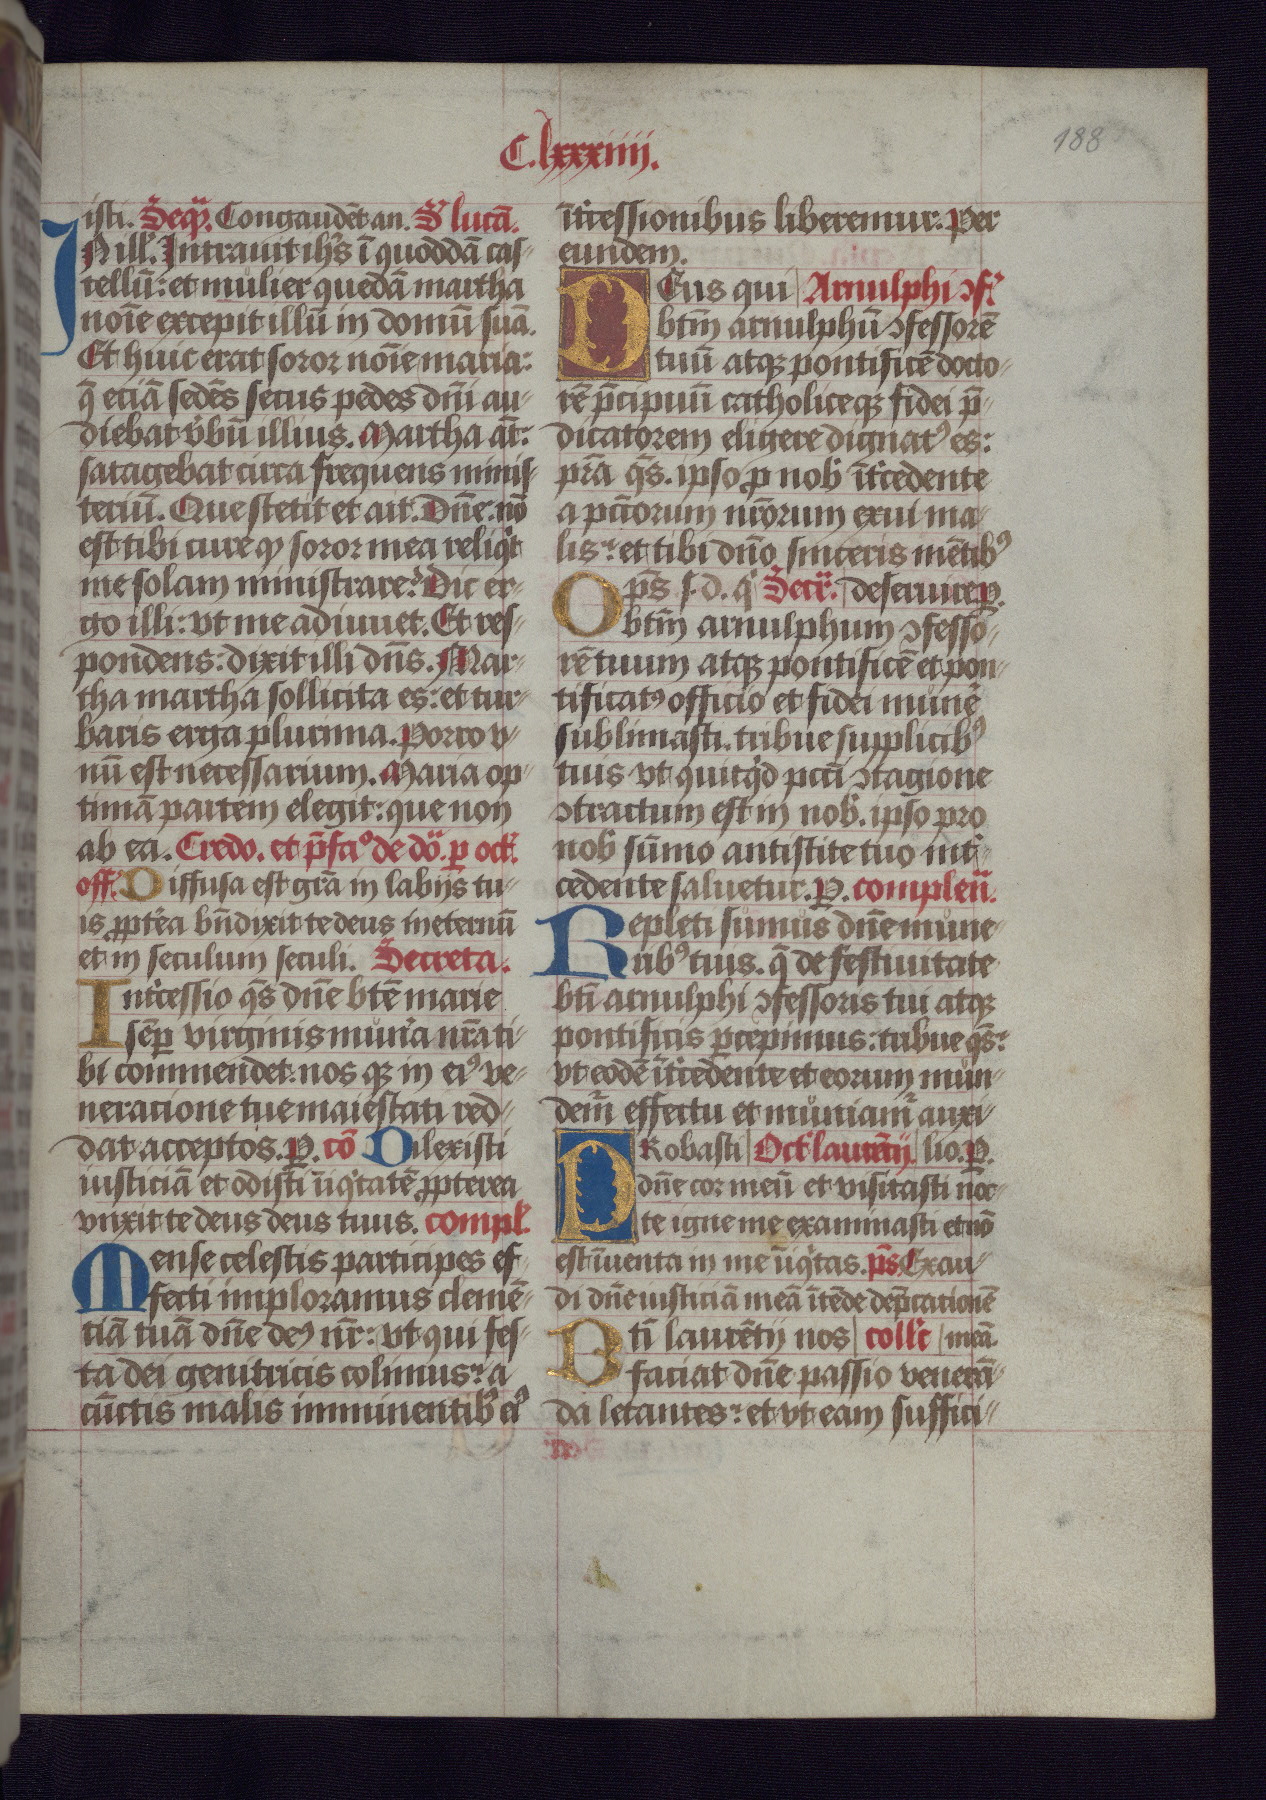 C.lxxxiiii.
188
isti. Seqr. Congaudēt an. S' lucā.
IN ill'. Intrauit ihs ī quoddā cas-
tellū: et mulier quedā martha
noīe excepit illū in domū suā.
Et huic erat soror noīe maria:
q̄ eciā sedēs secus pedes dn̄i au-
diebat v̓bū illius. Martha āt:
satagebat circa frequens minis-
teriū. Que stetit et ait. Dn̄e. nō
est tibi cure qꝫ soror mea reliqⁱt
me solam ministrare? Dic er-
go illi: vt me adiuuet. Et res-
pondens: dixit illi dn̄s. Mar-
tha martha sollicita es: et tur-
baris erga plurima. Porro v-
nū est necessarium. Maria op-
timā partem elegit: que non
ab ea. Credo. et p̄fac̄o de do. ꝑ oct'.
off'. Diffusa est grā in labijs tu-
is ꝓpt̓ea bn̄dixit te deus in eternū
et in seculum seculi. Secreta.
Int̓cessio qs̄ dn̄e btē marie
semꝑ virginis mun̓a nrā ti-
bi commendet: nos qꝫ in eiꝰ ve-
neracione tue maiestati red-
dat acceptos. P. cō Dilexisti
iusticiā et odisti īiqⁱtatē ꝓpterea
vnxit te deus deus tuus. compl'.
Mense celestis participes ef-
fecti imploramus clemē-
tiā tuā dn̄e deꝰ nr̄: vt qui fes-
ta dei genitricis colimus: a
cūctis malis imminentibꝰ eiꝰ
īt̓cessionibus liberemur. Per
eundem.
DEus qui Arnulphi ꝯf'
btm̄ arnulphū ꝯfessorē
tuū atqꝫ pontificē docto-
rē p̄cipuū catholiceqꝫ fidei p̄-
dicatorem eligere dignatꝰ es:
prā qs̄. ipso ꝓ nob' īt̓cedente
a pctōrum nrōrum exui ma-
lis: et tibi dn̄o sinceris mētibꝰ
Op̄s s. d. qⁱ Secr'. deseruire. P.
btm̄ arnulphum ꝯfesso-
rē tuum atqꝫ pontificē et pon-
tificatꝰ officio et fidei mun̓e
sublimasti. tribue supplicibꝰ
tuis vt quitqⁱd pcct̄i ꝯtagione
ꝯtractum est in nob'. ipso pro
nob' sūmo antistite tuo int̓-
cedente saluetur. P. complen̄.
Repleti sumus dn̄e mune-
ribꝰ tuis. q̄ de festiuitate
bti arnulphi ꝯfessoris tui atqꝫ
pontificis ꝑcepimus: tribue qs̄:
vt eodē īt̓cedente et eorum mun-
dem̄ effectu et muniam̄ auxi-
PRobasti Oct' laurētij. lio. P.
dn̄e cor meū et visitasti noc-
te igne me examinasti et nō
est īuenta in me īiqⁱtas. ps̄ Exau-
di dn̄e iusticiā meā ītēde dep̄cationē
Bti laurētij nos coll'c meā.
faciat dn̄e passio venerā-
da letantes: et vt eam suffici-